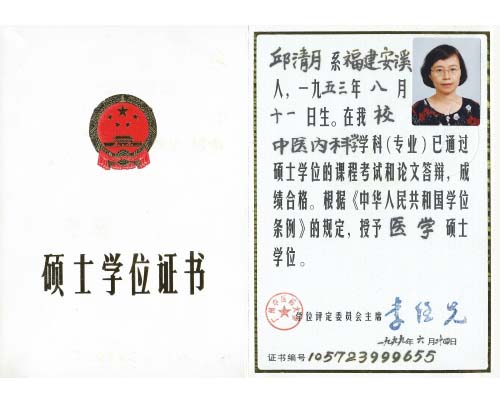 硕士学位证书
邱清月系福建安溪
人，一九五三年八月
十一日生。在我校
中医内科学学科(专业)已通过
硕士学位的课程考试和论文答辩，成
绩合格。根据《中华人民共和国学位
条例》的规定，授予医学硕士
学位。
学位评定委员会主席
一九九九年六月廿四日
证书编号105723999655